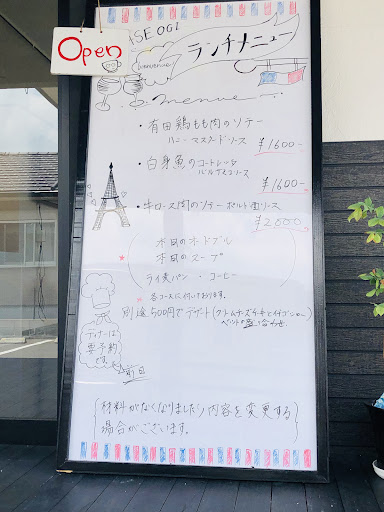 Open
ISE OGI
bienvenue
ランチメニュー
menue
・有田鶏もも肉のソテー
ハニーマスタードソース
¥1600-
・白身魚のコートレット
バルサミコソース
¥1600-
・牛ロース肉のソテーポルト酒ソース
¥2000-
本日のオードブル
本日のスープ
ライ麦パン・コーヒー
各コースに付いております。
別途500円でデザート
の盛り合わせ
ディナーは
要予約
です。
前日
材料がなくなりましたら内容を変更する
場合がございます。